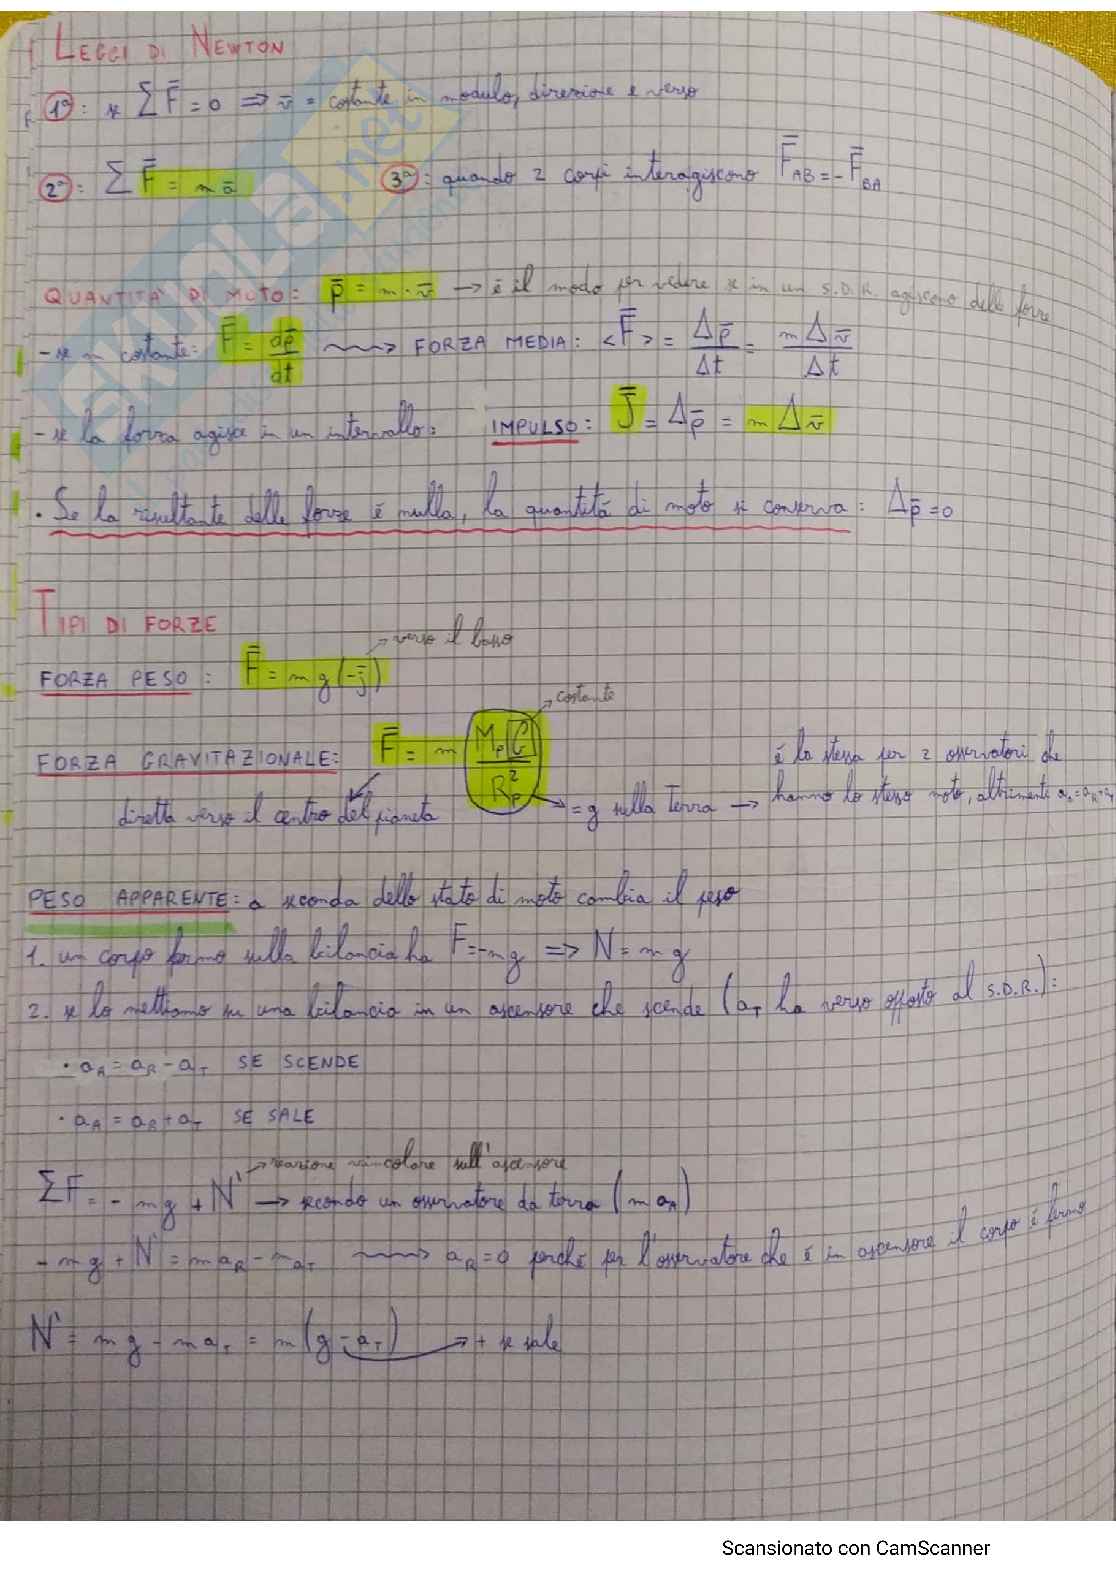 LEGGI DI NEWTON
1ª: se ΣF̄ = 0 => v̄ = costante in modulo, direzione e verso
2ª: ΣF̄ = m ā 3ª: quando 2 corpi interagiscono F̄AB = - F̄BA
QUANTITÀ DI MOTO: p̄ = m · v̄ → è il modo per vedere se in un S.D.R. agiscono delle forze
- se m costante: F̄ = dp̄/dt ⇝ FORZA MEDIA: <F̄> = Δp̄/Δt = mΔv̄/Δt
- se la forza agisce in un intervallo: IMPULSO: J̄ = Δp̄ = mΔv̄
· Se la risultante delle forze è nulla, la quantità di moto si conserva: Δp̄ = 0
TIPI DI FORZE
→ verso il basso
FORZA PESO: F̄ = m g (-j̄)
→ costante
FORZA GRAVITAZIONALE: F̄ = m MpG/Rp² è la stessa per 2 osservatori che
diretta verso il centro del pianeta = g sulla terra → hanno lo stesso moto, altrimenti
PESO APPARENTE: a seconda dello stato di moto cambia il peso
1. un corpo fermo sulla bilancia ha F = -mg => N = mg
2. se lo mettiamo su una bilancia in un ascensore che scende (aT ha verso opposto al S.D.R.):
· aA = aR - aT SE SCENDE
· aA = aR + aT SE SALE
→ reazione vincolare sull'ascensore
ΣF = - mg + N' → secondo un osservatore da terra (m aA)
- mg + N' = m aR - m aT ⇝ aR = 0 perché per l'osservatore che è in ascensore il corpo è fermo
N' = mg - m aT = m(g - aT) → + se sale
SKUOLA.net
Scansionato con CamScanner